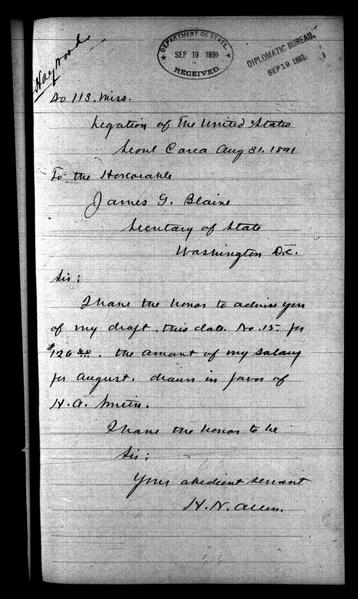 DEPARTMENT OF STATE,
SEP 19 1891
RECEIVED.
DIPLOMATIC BUREAU,
SEP 19, 1891
No 113. Miss.
Legation of The United States
Seoul Corea Aug 31. 1891
To the Honorable
James G. Blaine
Secretary of State
Washington D.C.
Sir:
I have the honor to advise you
of my draft. this date. No. 15. for
the amount of my salary
for August. drawn in favor of
H. A. Smith.
I have the honor to be
Sir:
Your obedient servant
H. N. Allen.